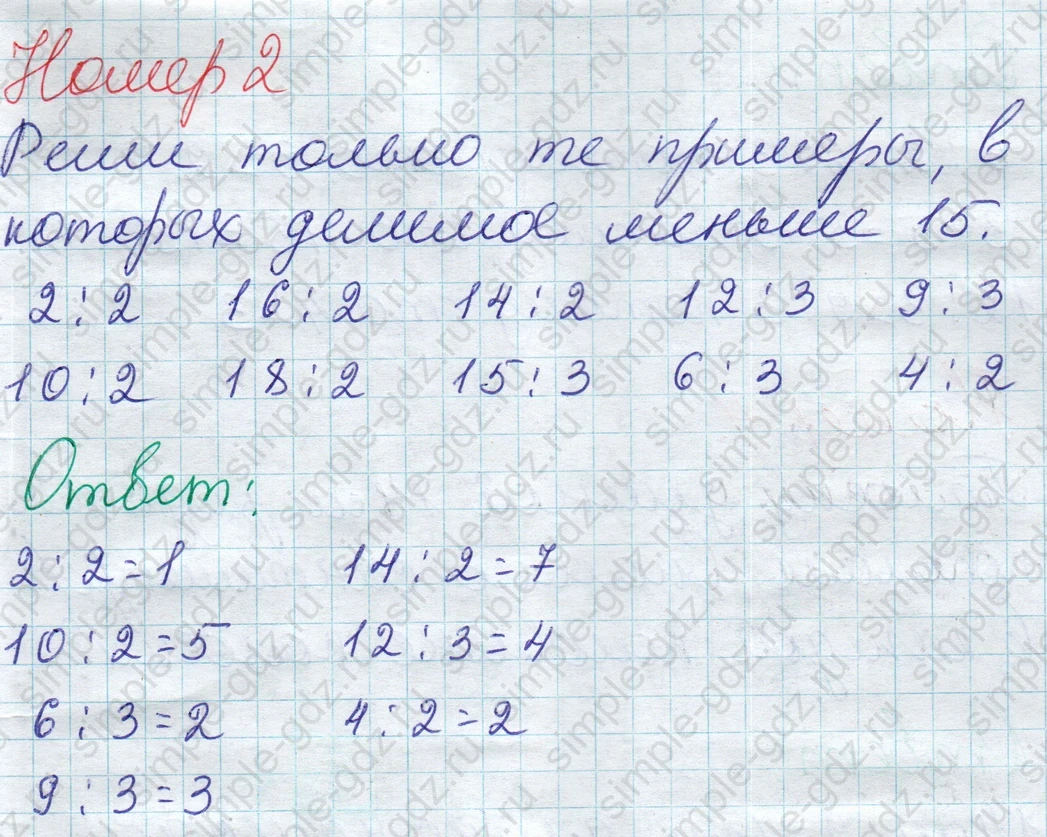 Номер 2
Реши только те примеры, в
которых делимое меньше 15.
2:2 16:2 14:2 12:3 9:3
10:2 18:2 15:3 6:3 4:2
Ответ:
2:2=1 14:2=7
10:2=5 12:3=4
6:3=2 4:2=2
9:3=3
simple-gdz.ru